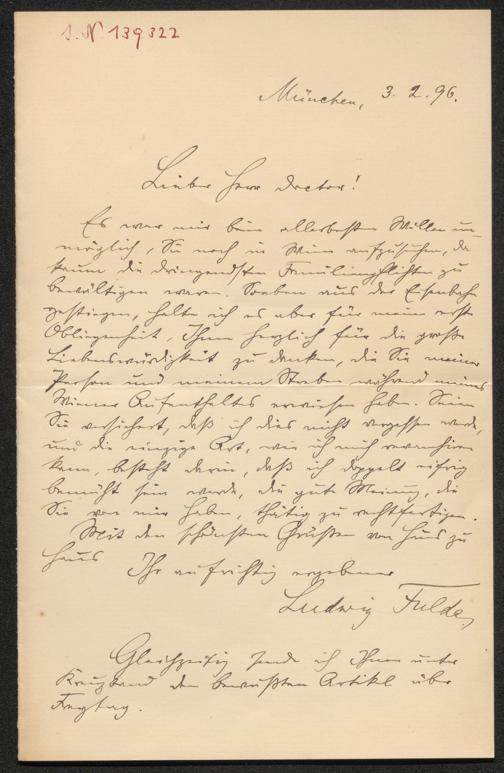 I. N 139322
München, 3. 2. 96.
Lieber Herr Doctor!
Es war mir beim allerbesten Willen un-
möglich, Sie noch in Wien aufzusuchen, da
kaum die dringendsten Familienpflichten zu
bewältigen waren. Soeben aus der Eisenbahn
gestiegen, halte ich es aber für meine erste
Obliegenheit, Ihnen herzlich für die große
Liebenswürdigkeit zu danken, die Sie meiner
Person und meinem Streben während meines
Wiener Aufenthaltes erwiesen haben. Seien
Sie versichert, daß ich dies nicht vergessen werde,
und die einzige Art, wie ich mich revanchiren
kann, besteht darin, daß ich doppelt eifrig
bemüht sein werde, die gute Meinung, die
Sie von mir haben, thätig zu rechtfertigen.
Mit den schönsten Grüßen von Haus zu
Haus
Ihr aufrichtig ergebener
Ludwig Fulda
Gleichzeitig sende ich Ihnen unter
Kreuzband den bewußten Artikel über
Freytag.